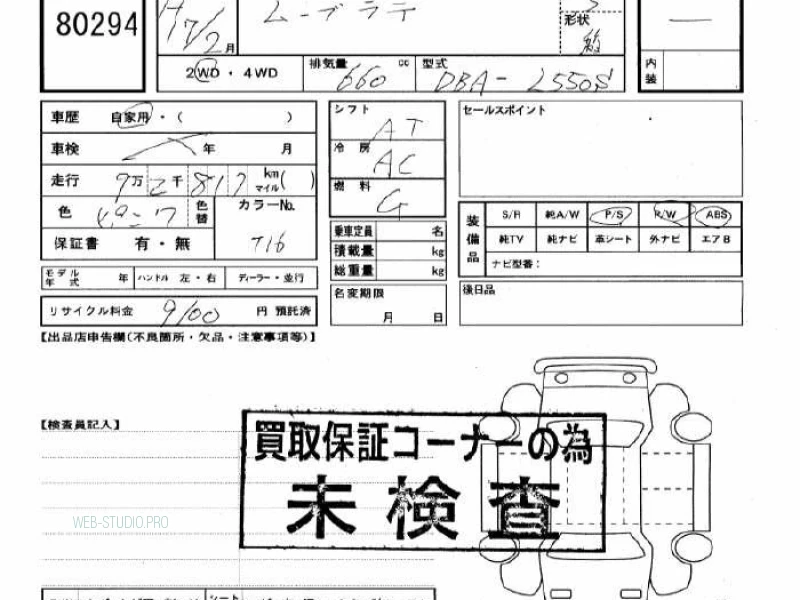 80294
H17/2月
ムーブラテ
形状
内装
2WD・4WD
排気量 660 cc
型式 DBA-L550S
車歴 自家用・( )
シフト AT
セールスポイント
車検 年 月
冷房 AC
走行 9万2千817 km マイル( )
燃料 G
色 色替
カラーNo. T16
乗車定員 名
積載量 kg
総重量 kg
保証書 有・無
装備品
S/R 純A/W P/S P/W ABS
純TV 純ナビ 革シート 外ナビ エアB
ナビ型番:
モデル年式 年 ハンドル 左・右 ディーラー・並行
名変期限 月 日
後日品
リサイクル料金 9100 円 預託済
【出品店申告欄(不良箇所・欠品・注意事項等)】
【検査員記入】
買取保証コーナーの為
未検査
WEB-STUDIO.PRO